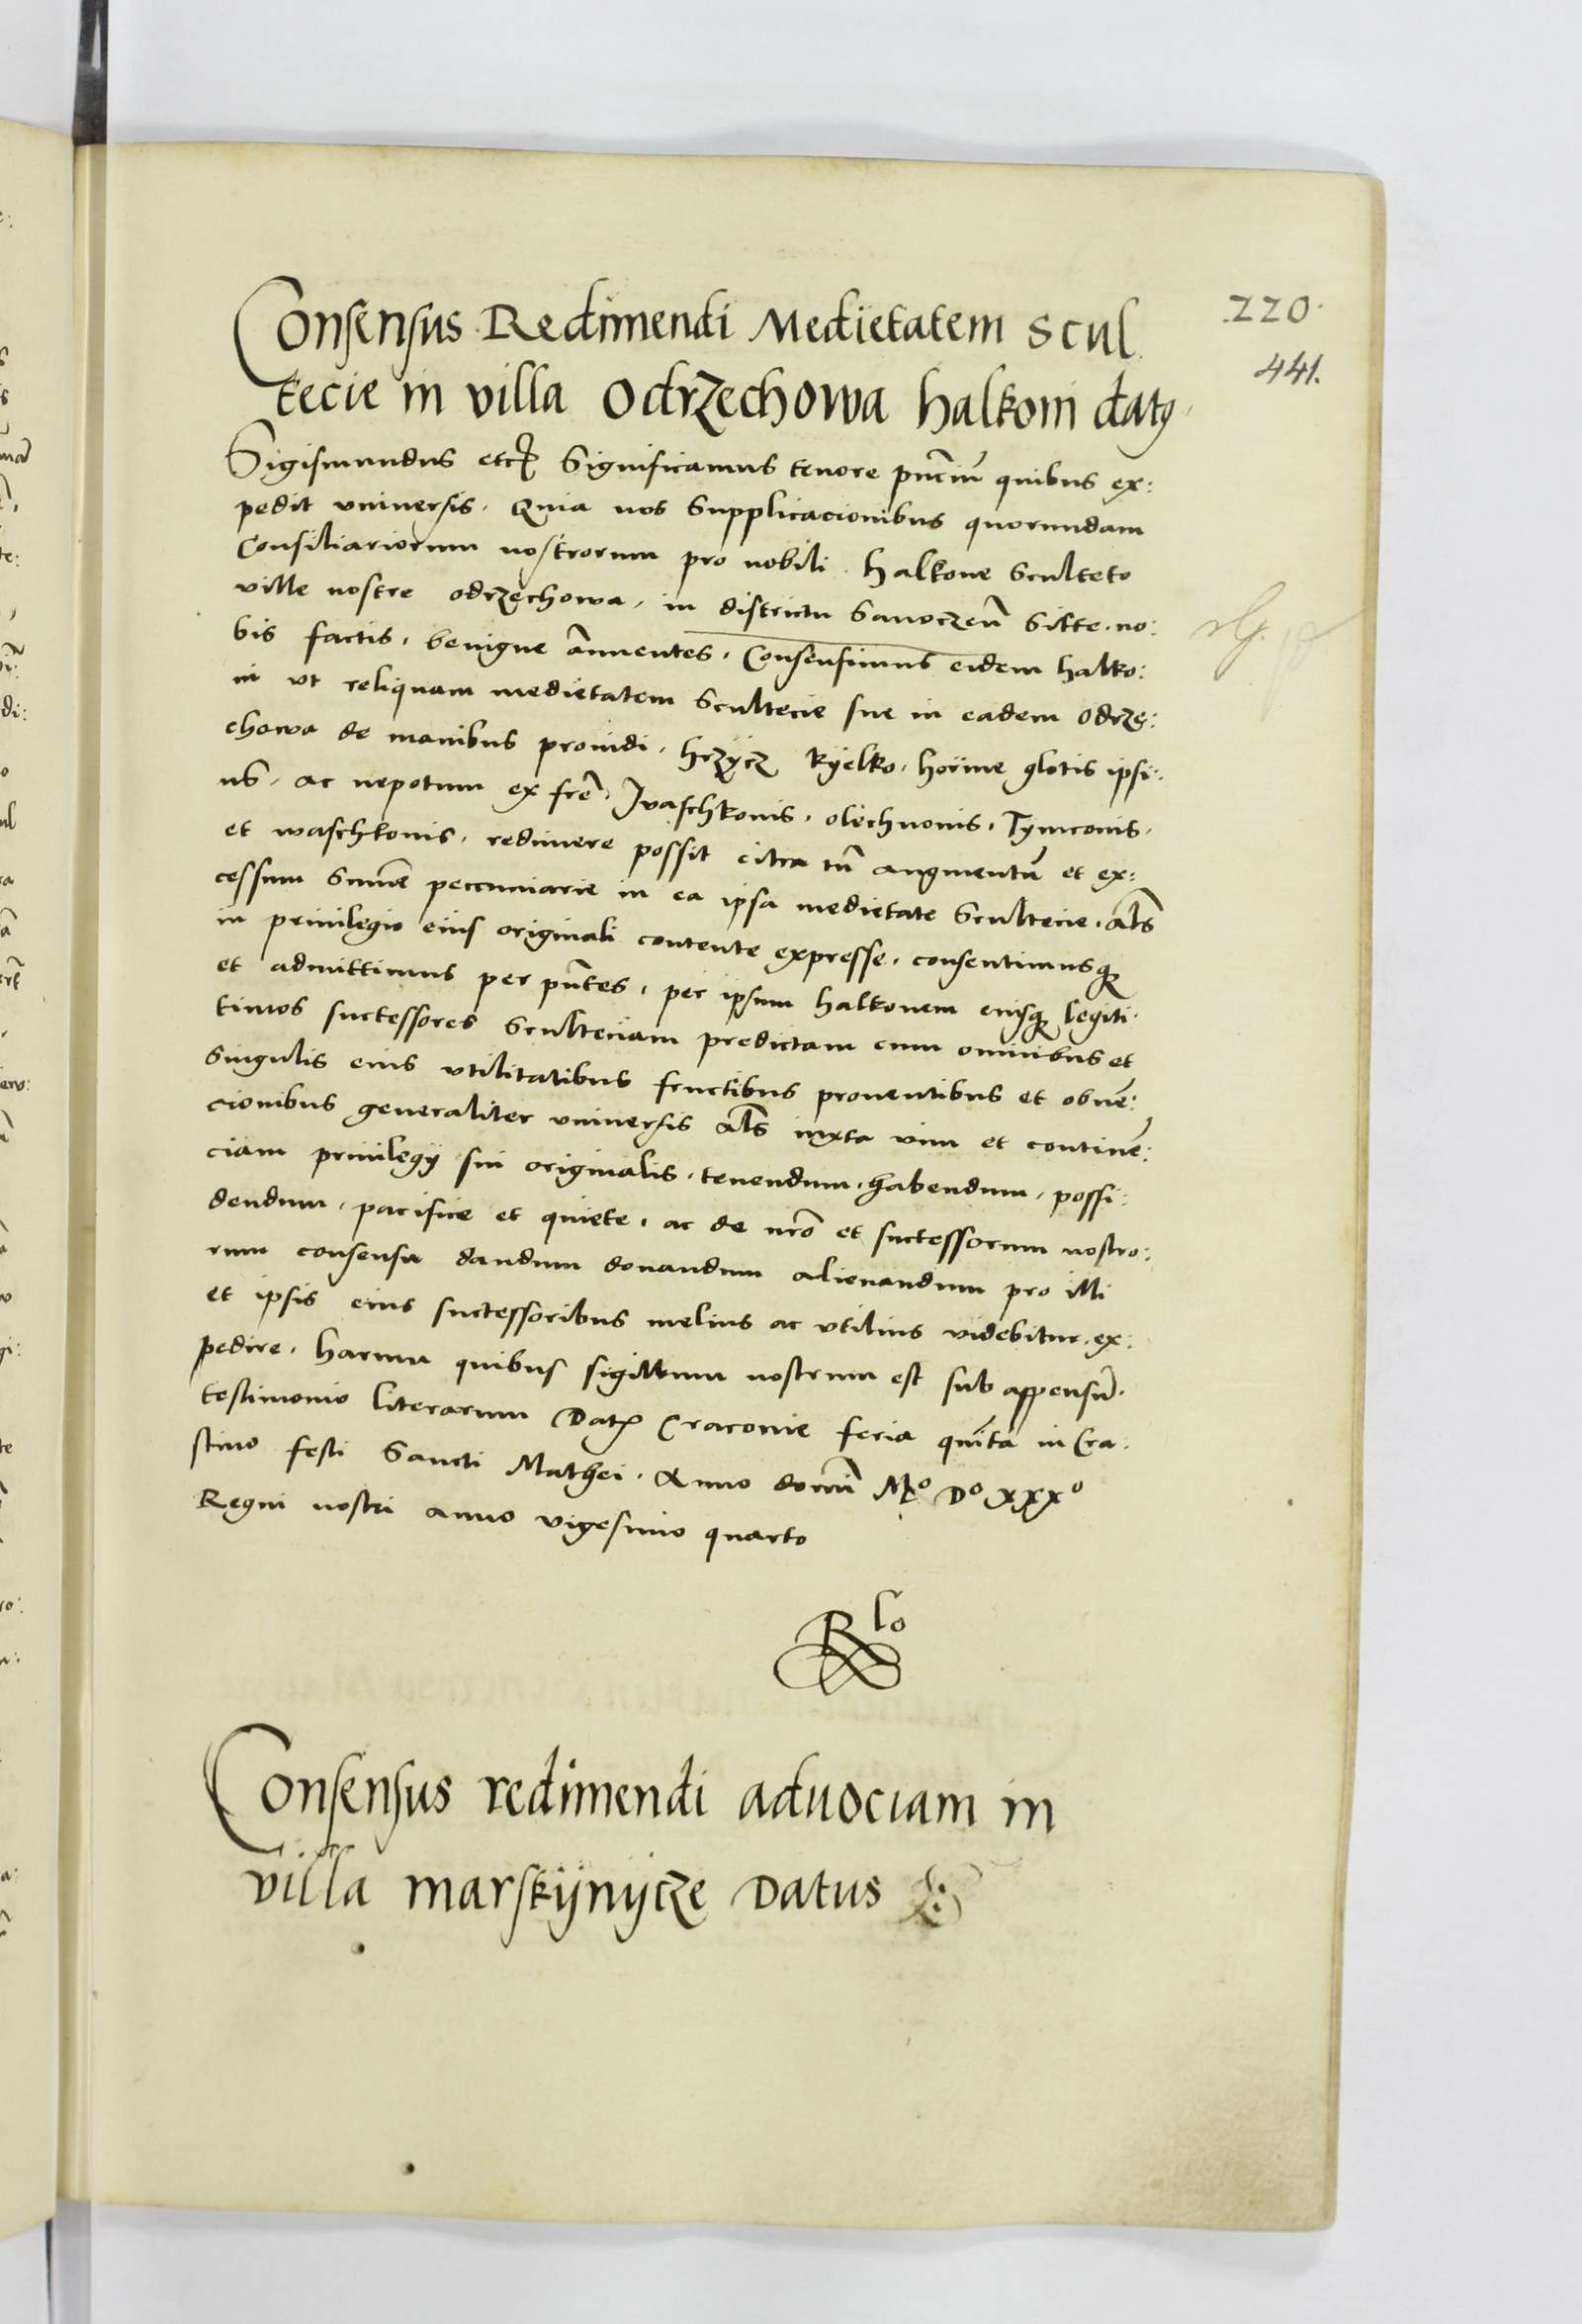 Consensus Redimendi Medietatem Scul
tecie in villa Odrzechowa halkoni datꝰ
220.
441.
Sigismundus etc̃ Significamus tenore pn̄ciū quibus ex:
pedit vniuersis. Quia nos Supplicacionibus quorundam
Consiliariorum nostrorum pro nobili halkone Sculteto
ville nostre odrzechowa, in districtu Sanoczeñ Sitte. no:
bis factis, benigne ānnuentes. Consensimus eidem halko:
ni vt reliquam medietatem Scultecie sue in eadem odrze:
chowa de manibus prouidi. hrzÿcz Kÿelko. horine glotis ipsi:
us. ac nepotum ex frē Jvaschkonis. olechnonis. Tymconis.
et waschkonis. redimere possit citra tn̄ augmentū et ex:
cessum Sum̄e peccuniarie in ea ipsa medietate Scultecie. als̄
in priuilegio eius originali contente expresse. consentimusqꝫ
et admittimus per pn̄tes, per ipsum halkonem eiusqꝫ legiti:
timos successores Sculteciam predictam cum omnibus et
Singulis eius vtilitatibus fructibus prouentibus et obuē:
cionibus generaliter vniuersis als̄ iuxta vim et continē:
ciam priuilegÿ sui originalis. tenendum. habendum. possi:
dendum. pacifice et quiete. ac de nr̄o et successorum nostro:
rum consensu dandum donandum alienandum pro illi
et ipsis eius successoribus melius ac vtilius videbitur. ex:
pedire. harum quibus sigillum nostrum est sub appensū.
testimonio literarum Datꝭ Cracouie feria quīta in Cra:
stino festi Sancti Mathei. Anno domī Mº Dº xxxº
Regni nostri anno vigesimo quarto
Consensus redimendi aduociam in
villa marskÿnÿcze Datus